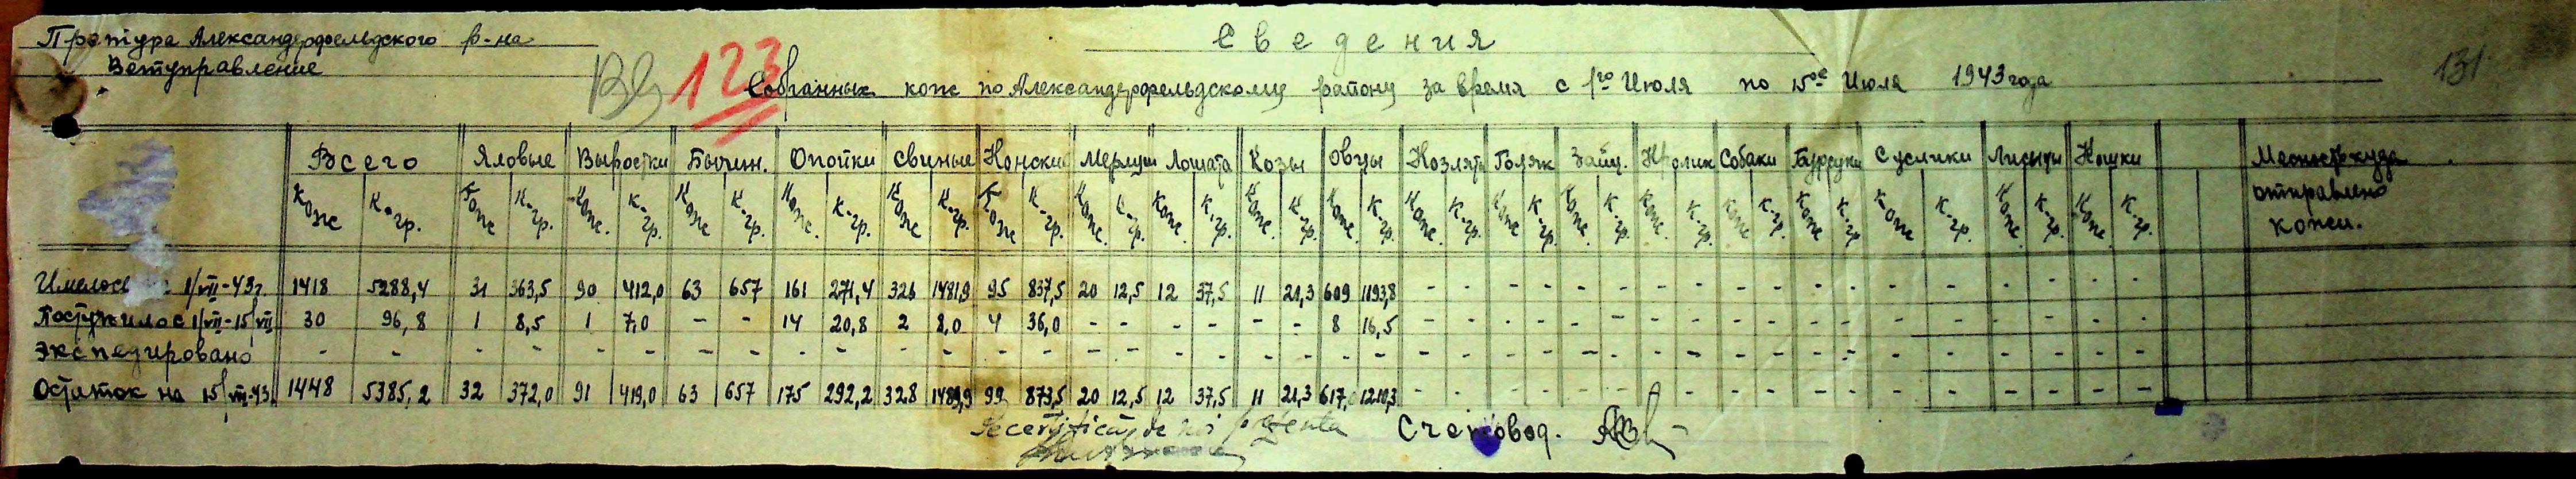 Претура Александерфельдского р-на
Ветуправление
123
Сведения
131
Собранных кож по Александерфельдскому району за время с 1го Июля по 15ое Июля 1943 года
Всего Яловые Выростки Бычин. Опойки Свиные Конские Мерлуш Лошата Козы Овцы Козлята Голяк Зайц. Кролик Собаки Бурсуки Суслики Лисицы Кошки Местность куда отправлено кожи.
Кож К-гр. Кож К-гр. Кож. К-гр. Кож К-гр. Кож. К-гр. Кож К-гр. Кож К-гр. Кож. К-гр. Кож. К-гр. Кож. К-гр. Кож. К-гр. Кож. К-гр. Кож. К-гр. Кож. К-гр. Кож. К-гр. Кож К-гр. Кож К-гр. Кож К-гр. Кож. К-гр. Кож. К-гр.
Имелось 1/VII-43г. 1418 5288,4 31 363,5 90 412,0 63 657 161 271,4 326 1481,9 95 837,5 20 12,5 12 37,5 11 21,3 609 1193,8 - - - - - - - - - - - - - - - - - -
Поступило с 1/VII-15/VII 30 96,8 1 8,5 1 7,0 - - 14 20,8 2 8,0 4 36,0 - - - - - - 8 16,5 - - - - - - - - - - - - - - - - - -
Экспедировано - - - - - - - - - - - - - - - - - - - - - - - - - - - - - - - - - - - - - - - -
Остаток на 15/VII-43. 1448 5385,2 32 372,0 91 419,0 63 657 175 292,2 328 1489,9 99 873,5 20 12,5 12 37,5 11 21,3 617, 1210,3 - - - - - - - - - - - - - - - - - -
Se certifică de noi prezenta Счетовод.